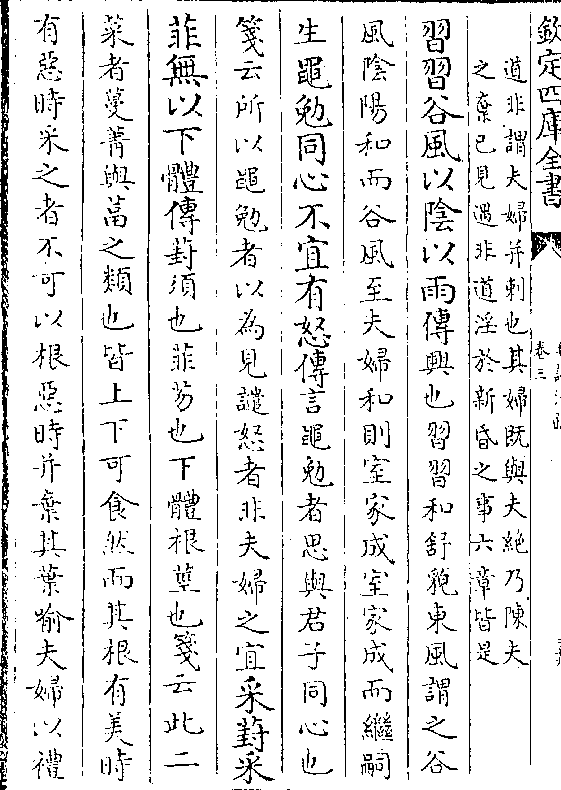 欽定四庫全書
卷三
道非謂夫婦并刺也其婦既與夫絶乃陳夫
之棄已見遇非道淫於新昏之事六章皆是
習習谷風以陰以雨傳興也習習和舒貌東風謂之谷
風陰陽和而谷風至夫婦和則室家成室家成而繼嗣
生黽勉同心不宜有怒傳言黽勉者思與君子同心也
箋云所以黽勉者以為見譴怒者非夫婦之宜采葑采
菲無以下體傳葑須也菲芴也下體根莖也箋云此二
菜者蔓菁與葍之類也皆上下可食然而其根有美時
有惡時采之者不可以根惡時并棄其葉喻夫婦以禮